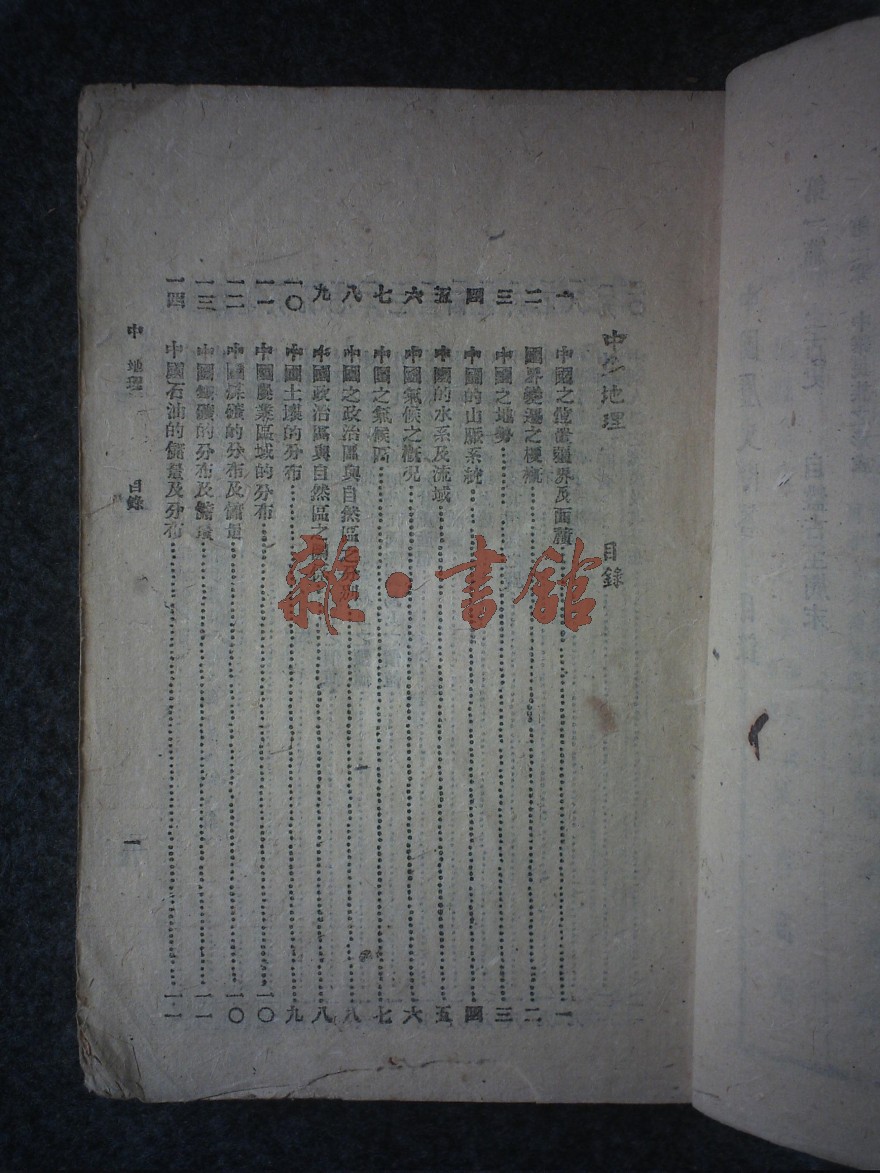 中 地理 目錄
一 中國之位置疆界及面積 一
二 國界變遷之梗概 二
三 中國之地勢 三
四 中國的山脈系統 四
五 中國的水系及流域 五
六 中國氣候之概況 六
七 中國之氣候區 七
八 中國之政治區與自然區 八
九 中國政治區與自然區之 八
一〇 中國土壤的分布 九
一一 中國農業區域的分布 一〇
一二 中國煤礦的分布及儲量 一〇
一三 中國鐵礦的分布及儲量 一一
一四 中國石油的儲量及分布 一一
中 地理 目錄 一
雜·書館